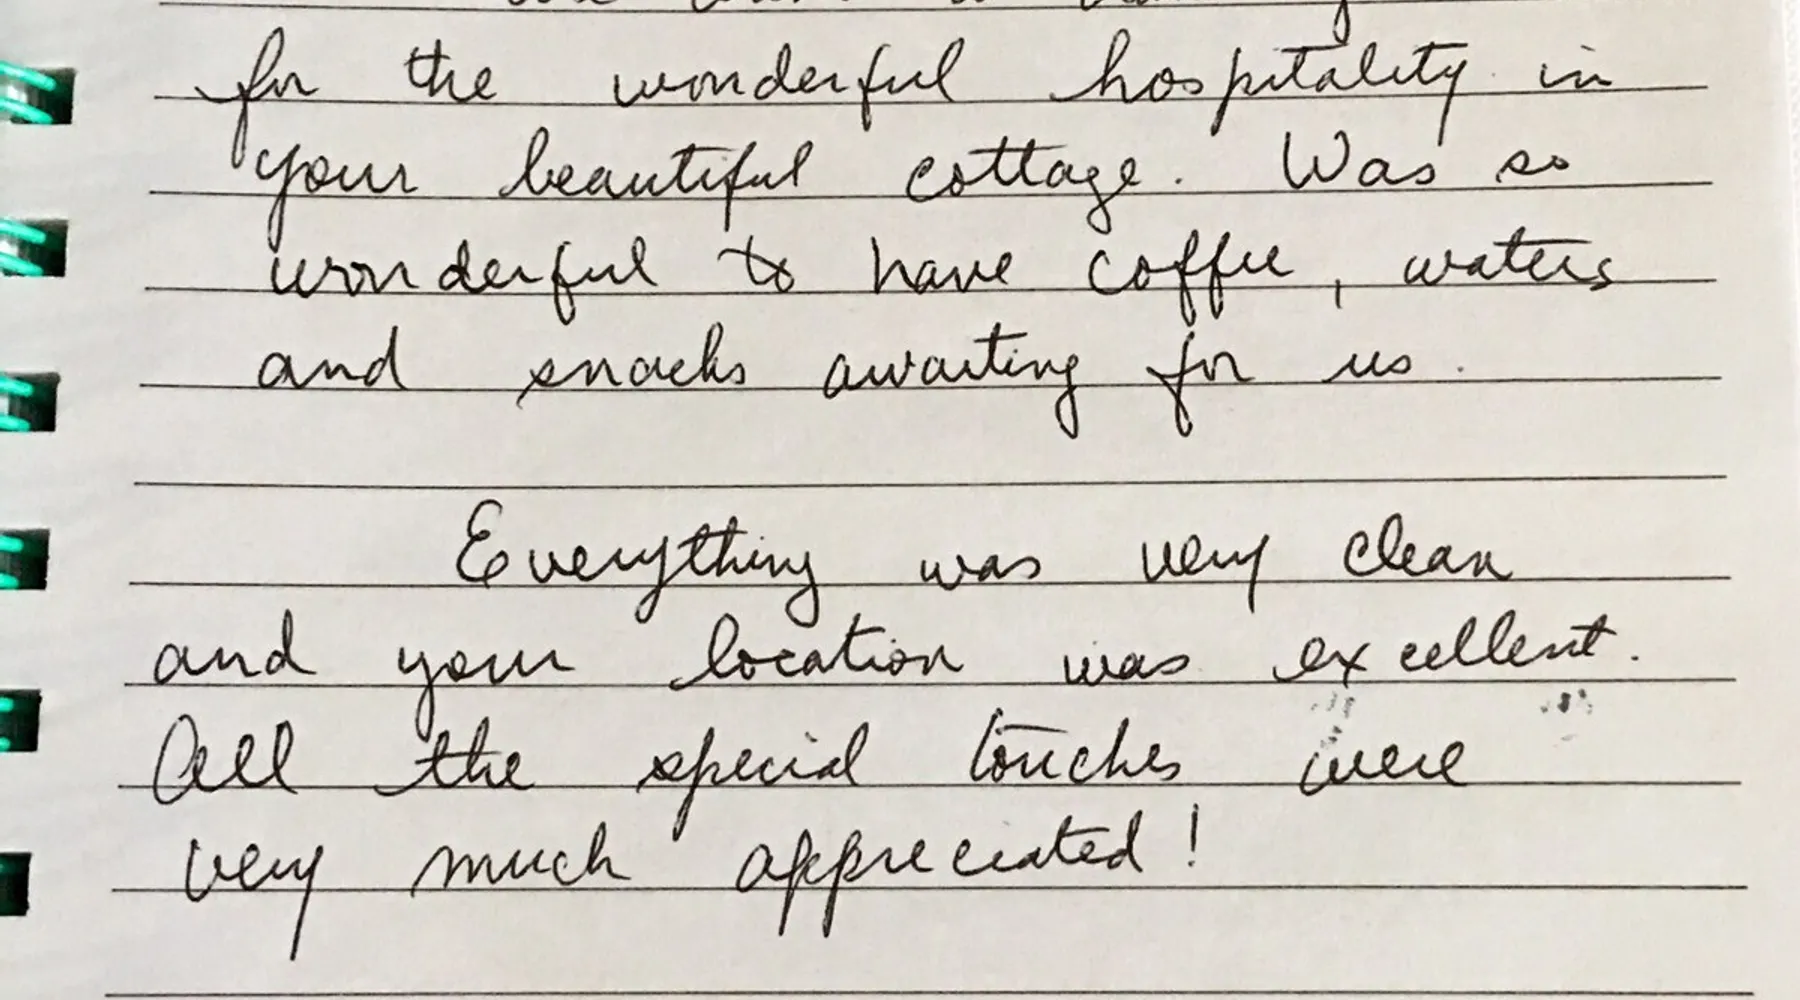 for the wonderful hospitality in
your beautiful cottage. Was so
wonderful to have coffee, waters
and snacks awaiting for us.
Everything was very clean
and your location was excellent.
All the special touches were
very much appreciated!